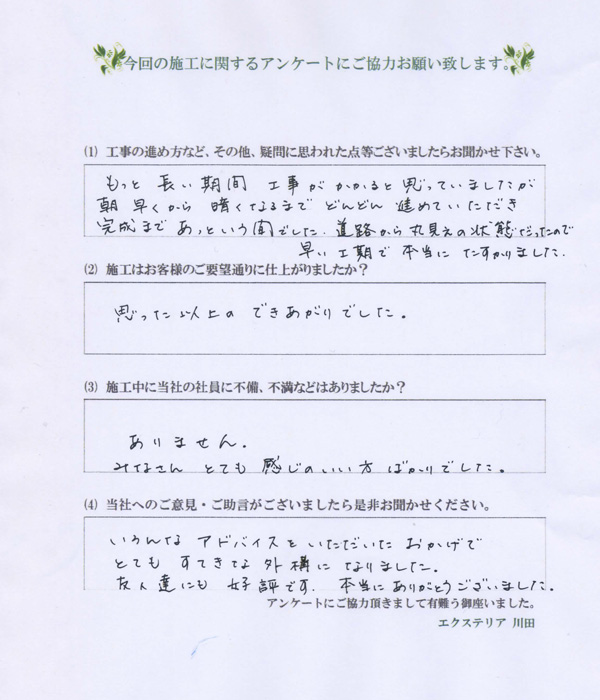 今回の施工に関するアンケートにご協力お願い致します。
(1) 工事の進め方など、その他、疑問に思われた点等ございましたらお聞かせ下さい。
もっと 長い期間 工事がかかると思っていましたが
朝早くから 暗くなるまで どんどん 進めていただき
完成まで あっという間でした。道路から丸見えの状態だったので
早い工期で 本当に たすかりました。
(2) 施工はお客様のご要望通りに仕上がりましたか？
思った以上の できあがりでした。
(3) 施工中に当社の社員に不備、不満などはありましたか？
ありません。
みなさん とても 感じのいい方 ばかりでした。
(4) 当社へのご意見・ご助言がございましたら是非お聞かせください。
いろんな アドバイスを いただいた おかげで
とても すてきな 外構に なりました。
友人達にも 好評です。 本当にありがとうございました。
アンケートにご協力頂きまして有難う御座いました。
エクステリア 川田